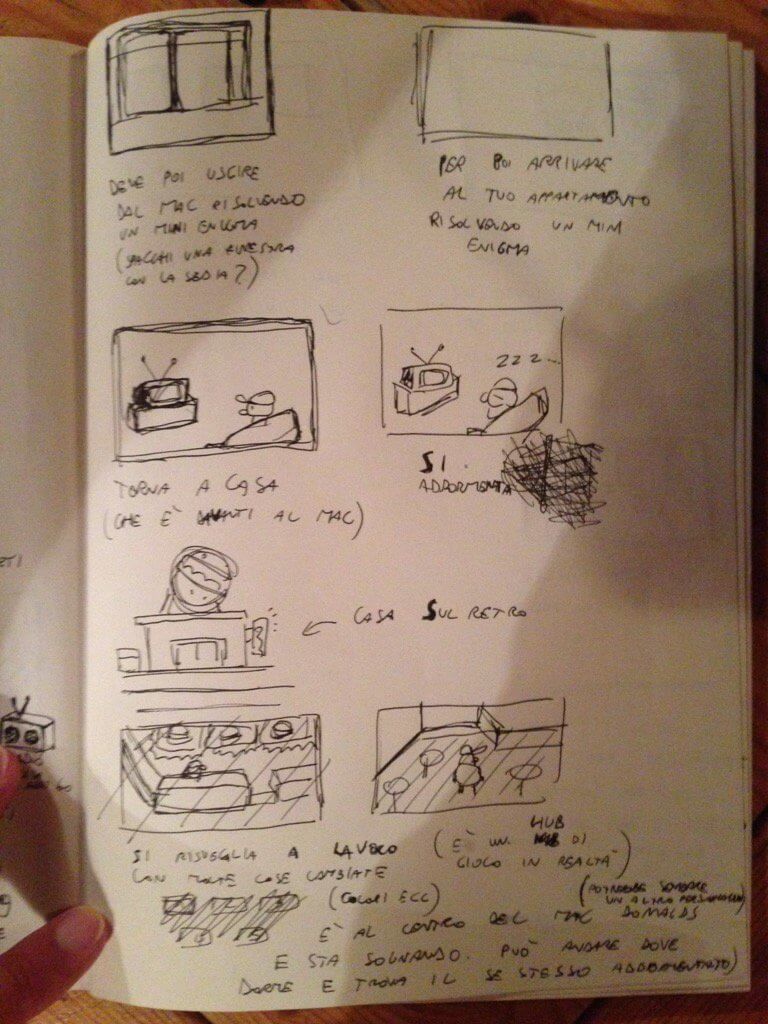 DEVE POI USCIRE
DAL MAC RISOLVENDO
UN MINI ENIGMA
(SPACCHI UNA FINESTRA
CON LA SEDIA?)
PER POI ARRIVARE
AL TUO APPARTAMENTO
RISOLVENDO UN MINI
ENIGMA
ZZZ...
TORNA A CASA
(CHE È AVANTI AL MAC)
SI
ADDORMENTA
CASA SUL RETRO
SI RISVEGLIA A LAVORO
CON MOLTE COSE CAMBIATE
(COLORI ECC)
HUB
(È UN DI
GIOCO IN REALTÀ)
(POTREBBE SEMBRARE
UN ALTRO PERSONAGGIO)
È AL CENTRO DEL MAC DONALDS
E STA SOGNANDO. PUÒ ANDARE DOVE
DORME E TROVA IL SE STESSO ADDORMENTATO)